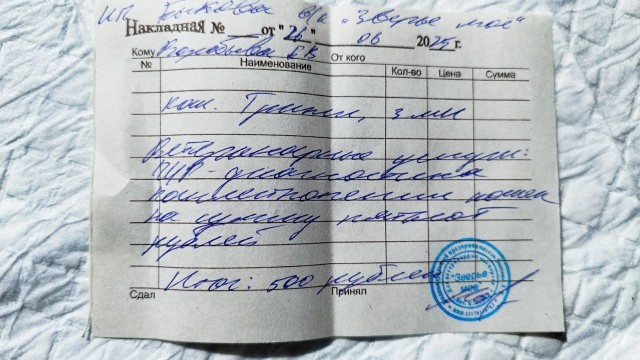 ИП Быкова в/к "Зверье мое"
Накладная № от "26" 08 2025 г.
Кому Е В От кого
№ Наименование Кол-во Цена Сумма
кот. Гриша, 3 мес
Ветеринарные услуги:
ПЦР-диагностика
панлейкопении кошек
на сумму пятьсот
рублей
Итог: 500 рублей
Сдал Принял
"Зверье
мое"